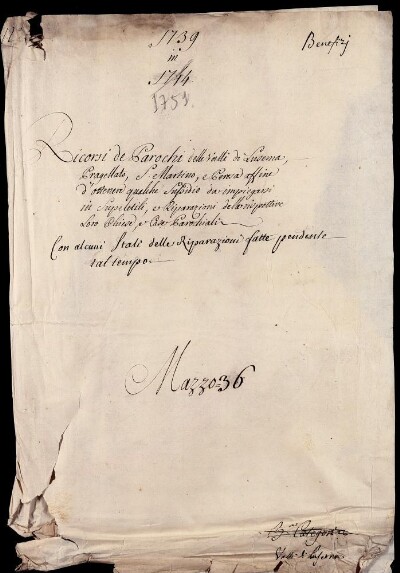 1739
Benefizj
in
1744
1751.
Ricorsi de Parochi delle Valli di Luserna,
Pragellato, S. Martino, e Perosa affine
d'ottenere qualche Sussidio da impiegarsi
in Supelletili, e Riparazioni delle rispettive
Loro Chiese, e Case Parochiali
Con alcuni Stati delle Riparazioni fatte pendente
tal tempo
Mazzo 36
Categoria
Valli di Luserna